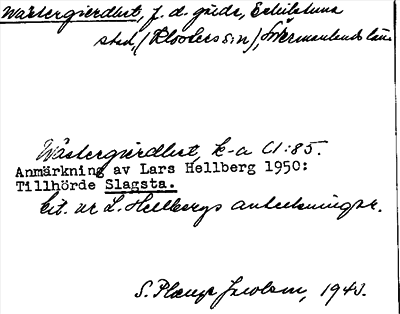 Wästergierdhet, f.d. gård, Eskilstuna
stad, (Klosters sn), Södermanlands län
Wästergierdhet, k-a U:85.
Anmärkning av Lars Hellberg 1950:
Tillhörde Slagsta.
Cit. ur L. Hellbergs anteckningar.
S. Plænge Jacobson, 1943.